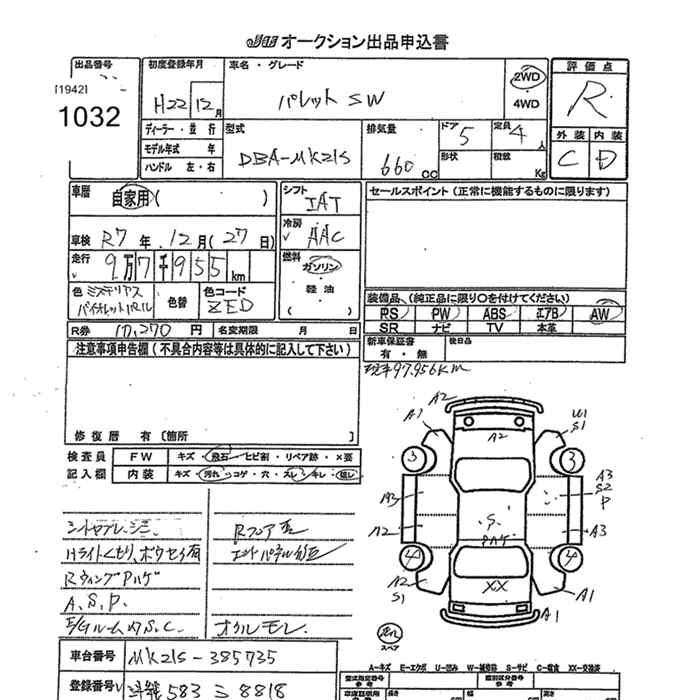 JU オークション出品申込書
出品番号
[1942]
1032
初度登録年月
H22 12月
車名・グレード
パレット SW
2WD
4WD
評価点
R
外装 内装
C D
ディーラー・並行
モデル年式 年
ハンドル 左・右
型式
DBA-MK21S
排気量
660 cc
ドア 5
形状
定員 4 人
積載 Kg
車歴
自家用 ( )
シフト
IAT
セールスポイント (正常に機能するものに限ります)
車検 R7年 12月 (27日)
冷房
AAC
走行 9万7千955km
燃料
ガソリン
・
軽油
色 ミステリアス
バイオレットパール
色替
色コード
ZED
装備品 (純正品に限り○を付けてください)
PS PW ABS エアB AW
SR ナビ TV 本革
R券 10,270円 名変期限 月 日
新車保証書
有・無
後日品
注意事項申告欄 (不具合内容等は具体的に記入して下さい)
現車97,956km
修復歴 有 [箇所 ]
検査員
記入欄
FW キズ・飛石・ヒビ割・リペア跡・×要
内装 キズ・汚れ・コゲ・穴・スレ・キレ・
A2
A1
A2
U1
S1
3
3
A3
A3
S2
P
S
A2
A3
4
4
A2
S1
XX
A1
A1
スペア
シートヤブレ、シミ
Rフロア歪
Hライトくもり、
Rウィング Pハゲ
A.S.P.
E/Gルーム内 S.C.
オイルモレ
車台番号 MK21S-385735
登録番号 583 こ 8818
A-キズ E-エクボ U-凹み W-補修跡 S-サビ C-腐食 XX-交換済
型式指定番号
類別区分番号
長さ cm
幅 cm
高さ cm